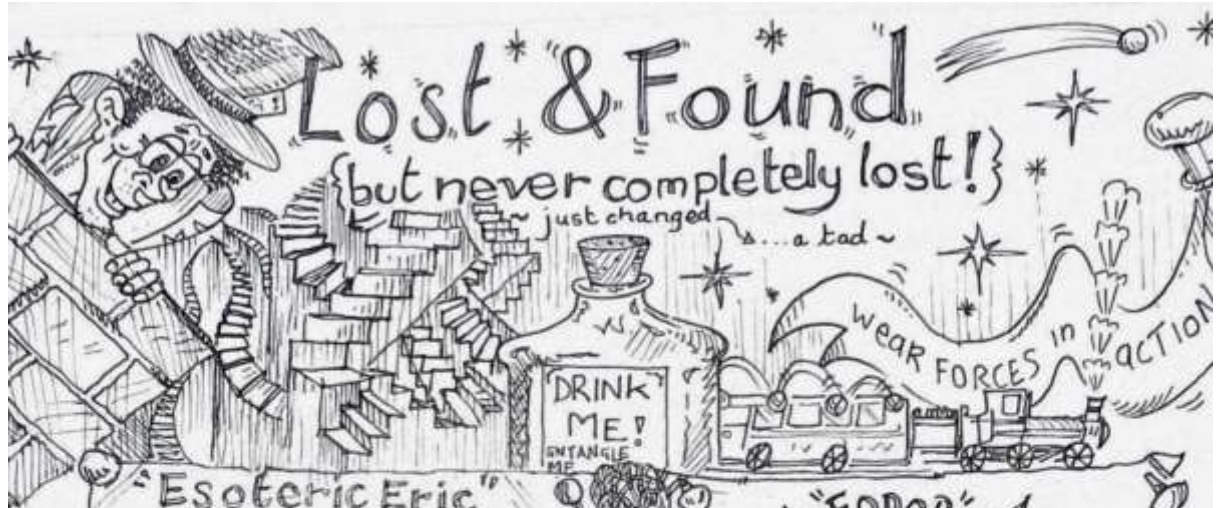 Lost & Found
{but never completely lost!}
~ just changed
... a tad ~
WEAR FORCES in ACTION
DRINK
ME!
ENTANGLE
ME
"Esoteric Eric"